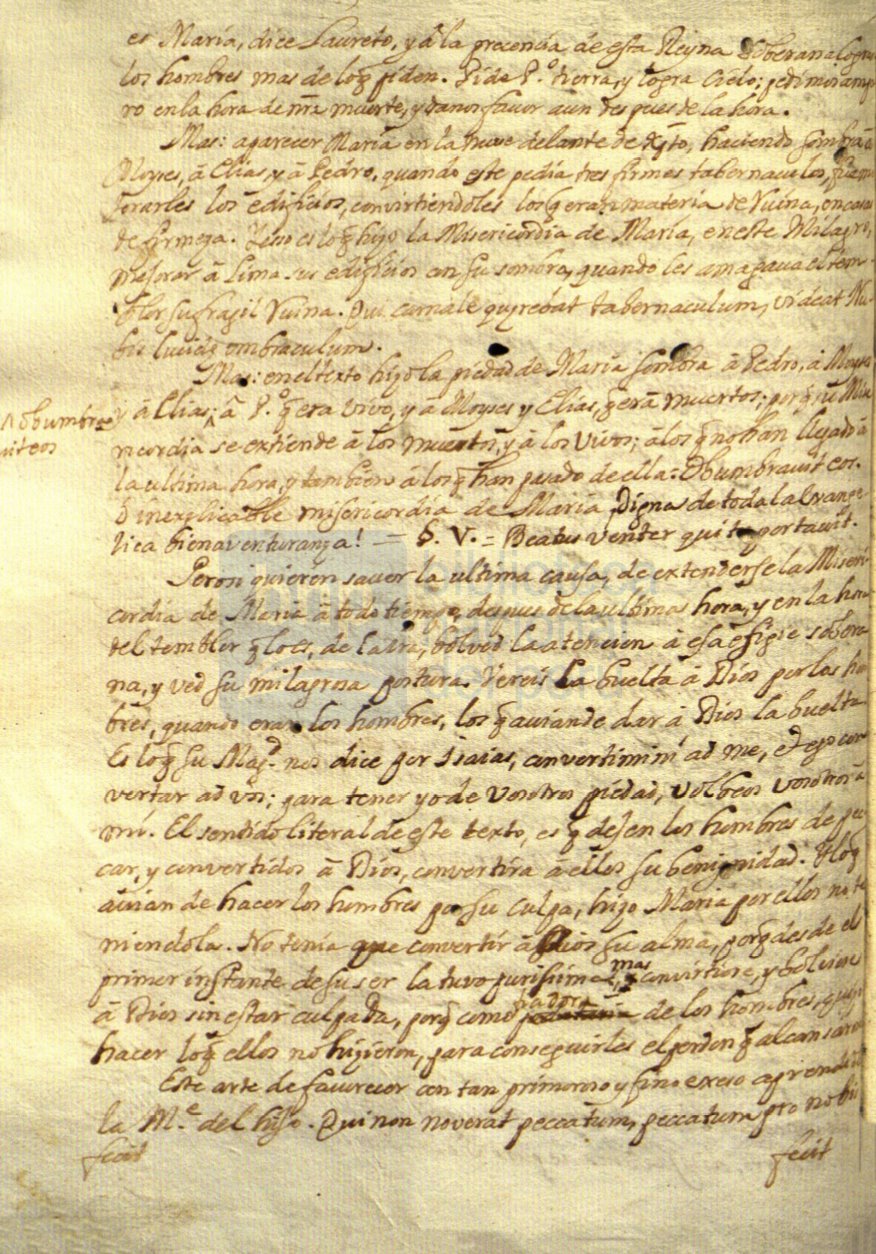 es María, dice Laureto, y â la precencia de esta Reyna Soberana logran
los hombres mas de loq̃ piden. Pide P.º tierra, y logra Cielo; pedimos ampa
ro en la hora de nr̃a muerte, y danos favor aun despues de la hora.
Mas: aparecer Maria en la nuve delante de Xp̃to, haciendo sombra â
Moyses, â Elias, y â Pedro, quando este pedia tres firmes tabernaculos, fue me
jorarles los edificios, convirtiendoles los q̃ eran materia de Ruina, en casas
de firmeza. Y esso es loq̃ hizo la Misericordia de María, en este Milagro,
mejorar â Lima sus edificios con su sombra, quando les amagava el tem-
blor su fragil Ruina. Qui carnale quęrebat tabernaculum, videat Nu-
bis lucidę ombraculum.
Mas: en el texto hizo la piedad de Maria sombra â Pedro, â Moyses
y â Elias; ^ â P.º q̃ era vivo, y â Moyses y Elias, q̃ erã muertos; porq̃ su Mise
^ obumbra-
vit eos
ricordia se extiende â los muertos, y â los vivos; â los q̃ no han llegado â
la ultima hora, y tambien â los q̃ han pasado de ella: Obumbravit eos.
O inexplicable misericordia de Maria, Digna de toda la Evange
lica bienaventuranza! = S. V. = Beatus venter qui te portavit.
Pero si quieren saver la ultima causa, de extenderse la Miseri
cordia de Maria â todo tiempo, despues de la ultima hora, y en la hora
del temblor q̃ lo es, de la ira, bolved la atencion â esa efigie sobera
na, y ved su milagrosa postura. Vereis la buelta â Dios por los hom
bres, quando eran los hombres, los q̃ avian de dar â Dios la buelta
Es loq̃ su Mag.d nos dice por Isaias, convertimini ad me, et ego con
vertar ad vos; para tener yo de vosotros piedad, volbeos vosotros â
mi. El sentido literal de este texto, es q̃ dejen los hombres de pe
car, y convertidos â Dios, convertira â ellos su benignidad. Y loq̃
avian de hacer los hombres por su culpa, hizo Maria por ellos no te
niendola. No tenia que convertir â Dios su alma, porq̃ desde el
primer instante de su ser la tuvo purisima, mas convirtiose, y bolviose
â Dios sin estar culpada, porq̃ como padora de los hombres, quiso
hacer loq̃ ellos no hizieron, para conseguirles el perdon q̃ alcansaron
Este arte de favorecer con tan primoroso y fino exeso aprendio
la M.e del hijo. Qui non noverat peccatum, peccatum pro nobis
fecit fecit